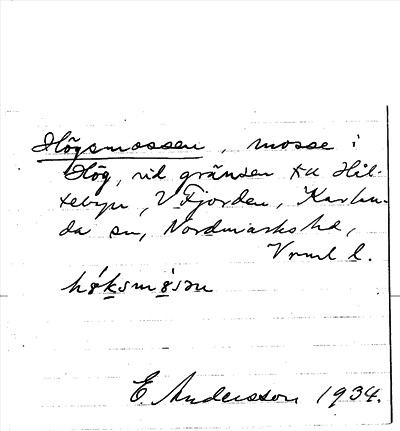 Högsmossen, mosse i
Hög, vid gränsen till Hil-
tebyn, V Fjorden, Karlan-
da sn, Nordmarks hd,
Vrml l.
hǿksmǿsən
E. Andersson 1934.